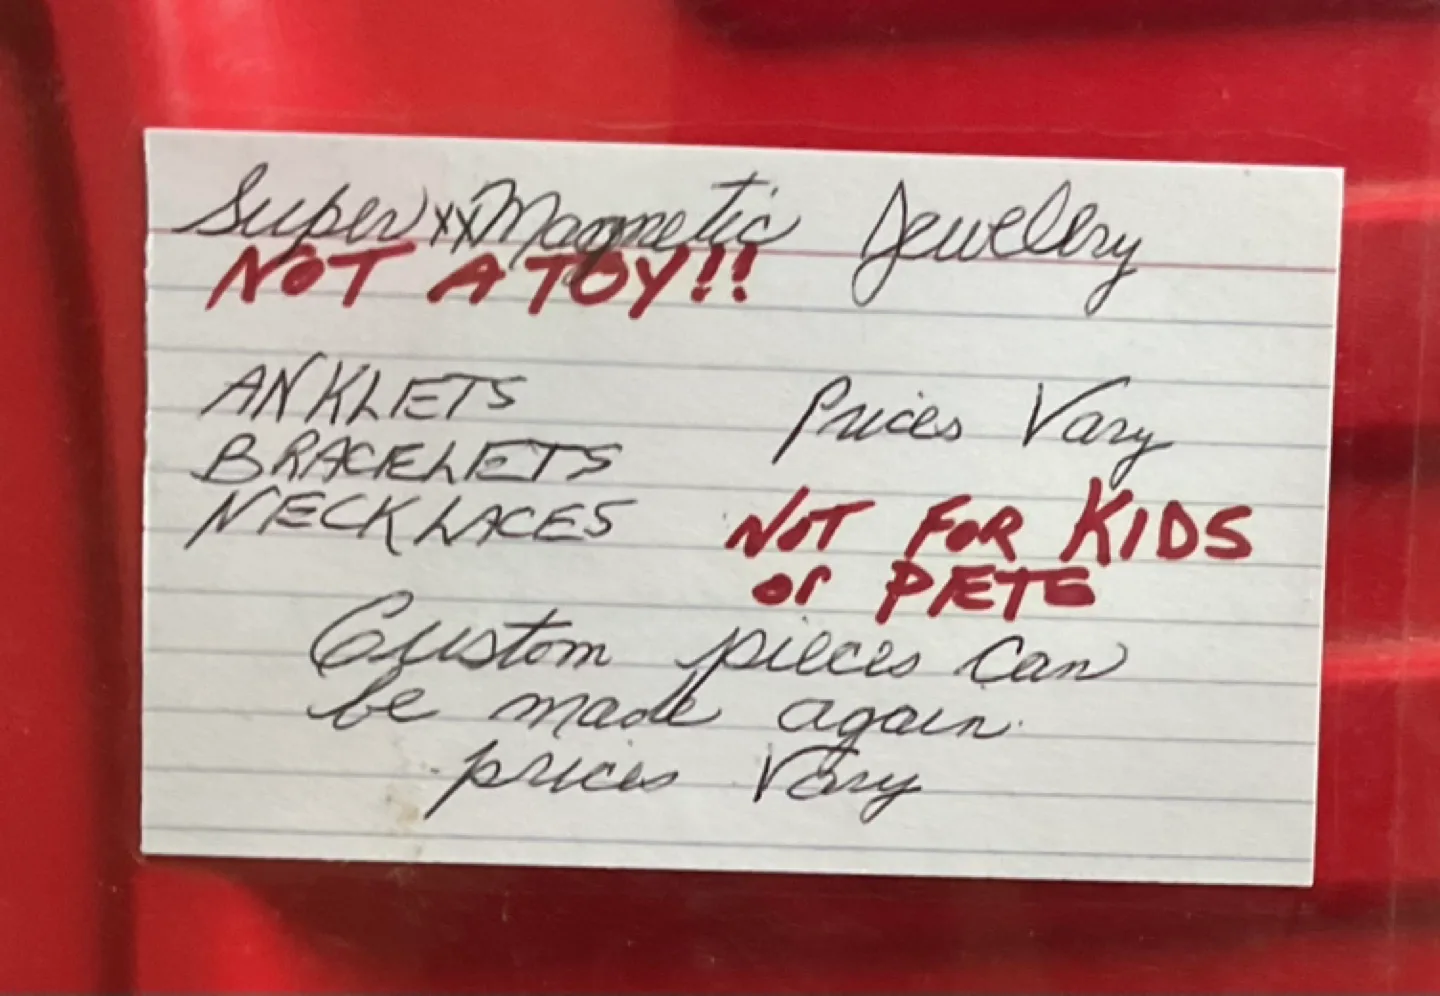 Super xx Magnetic Jewelery
NOT A TOY!!
ANKLETS
BRACELETS
NECKLACES
Prices Vary
NOT FOR KIDS
or PETS
Custom pieces can
be made again.
prices Vary